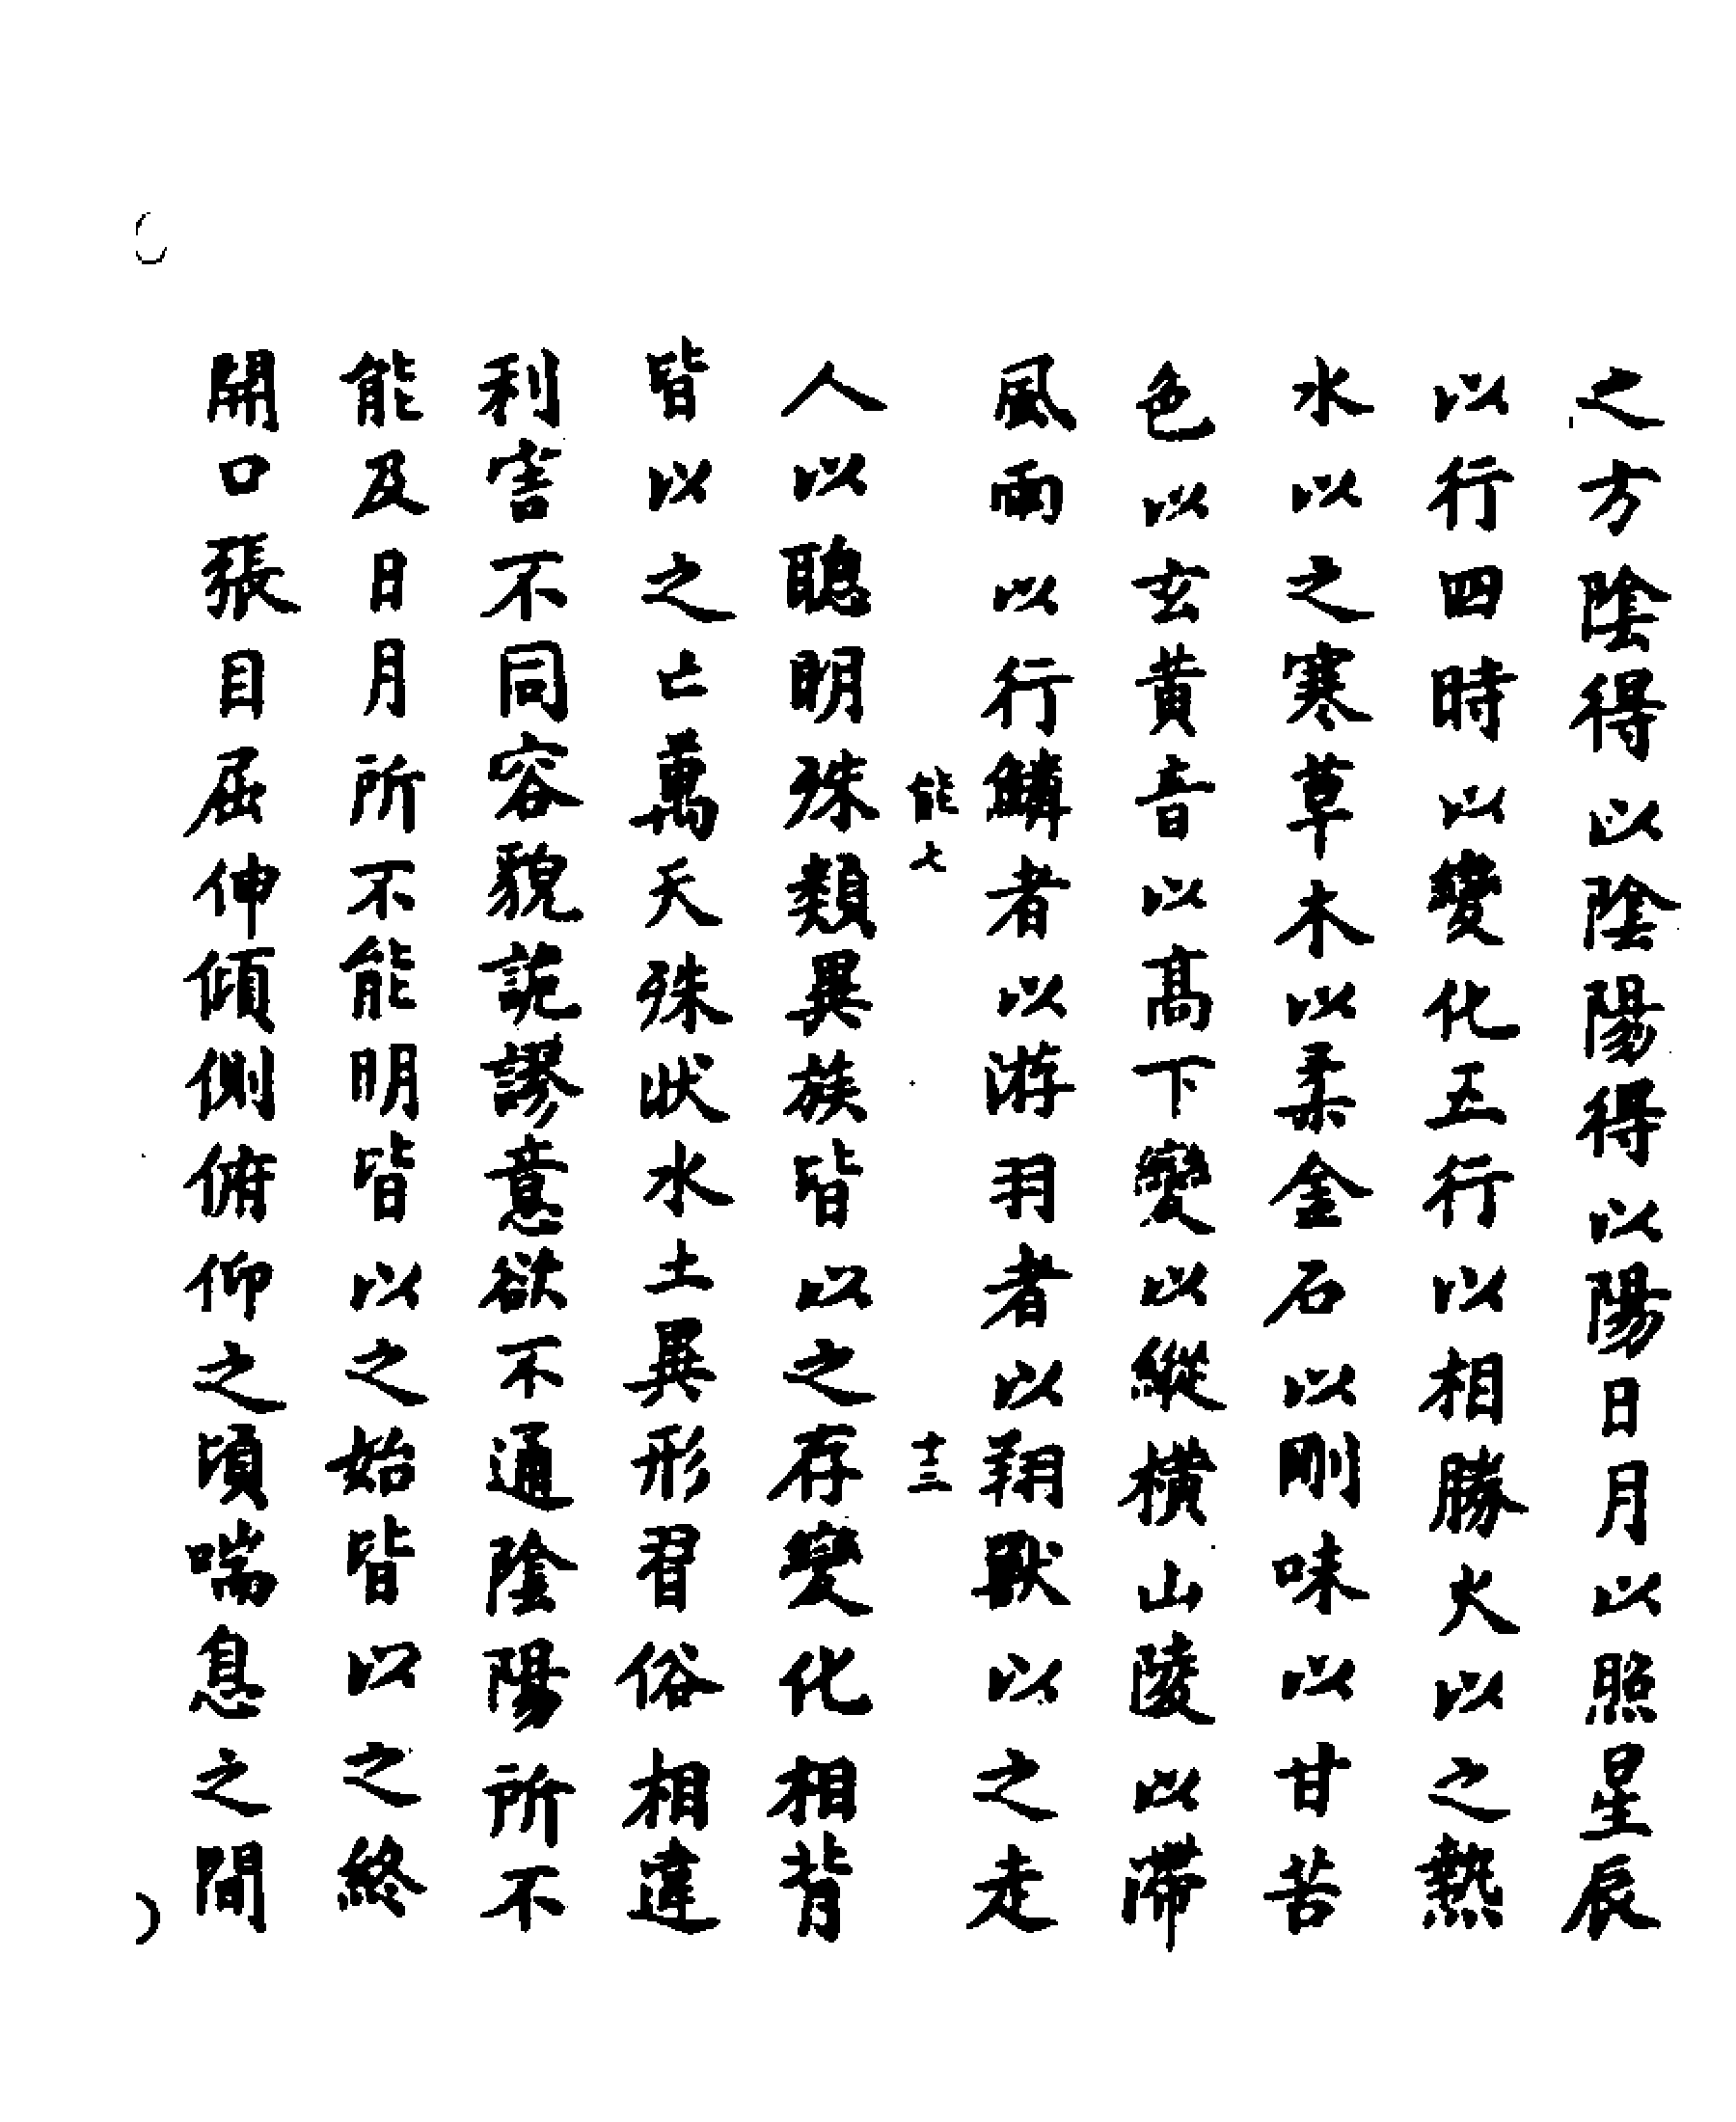 之方陰得以陰陽得以陽日月以照星辰
以行四時以變化五行以相勝火以之熱
水以之寒草木以柔金石以剛味以甘苦
色以玄黃音以高下變以縱橫山陵以滯
風雨以行鱗者以游羽者以翔獸以之走
能七 十三
人以聰明殊類異族皆以之存變化相背
皆以之亡萬天殊狀水土異形習俗相違
利害不同容貌詭謬意欲不通陰陽所不
能及日月所不能明皆以之始皆以之終
開口張目屈伸傾側俯仰之頃喘息之間